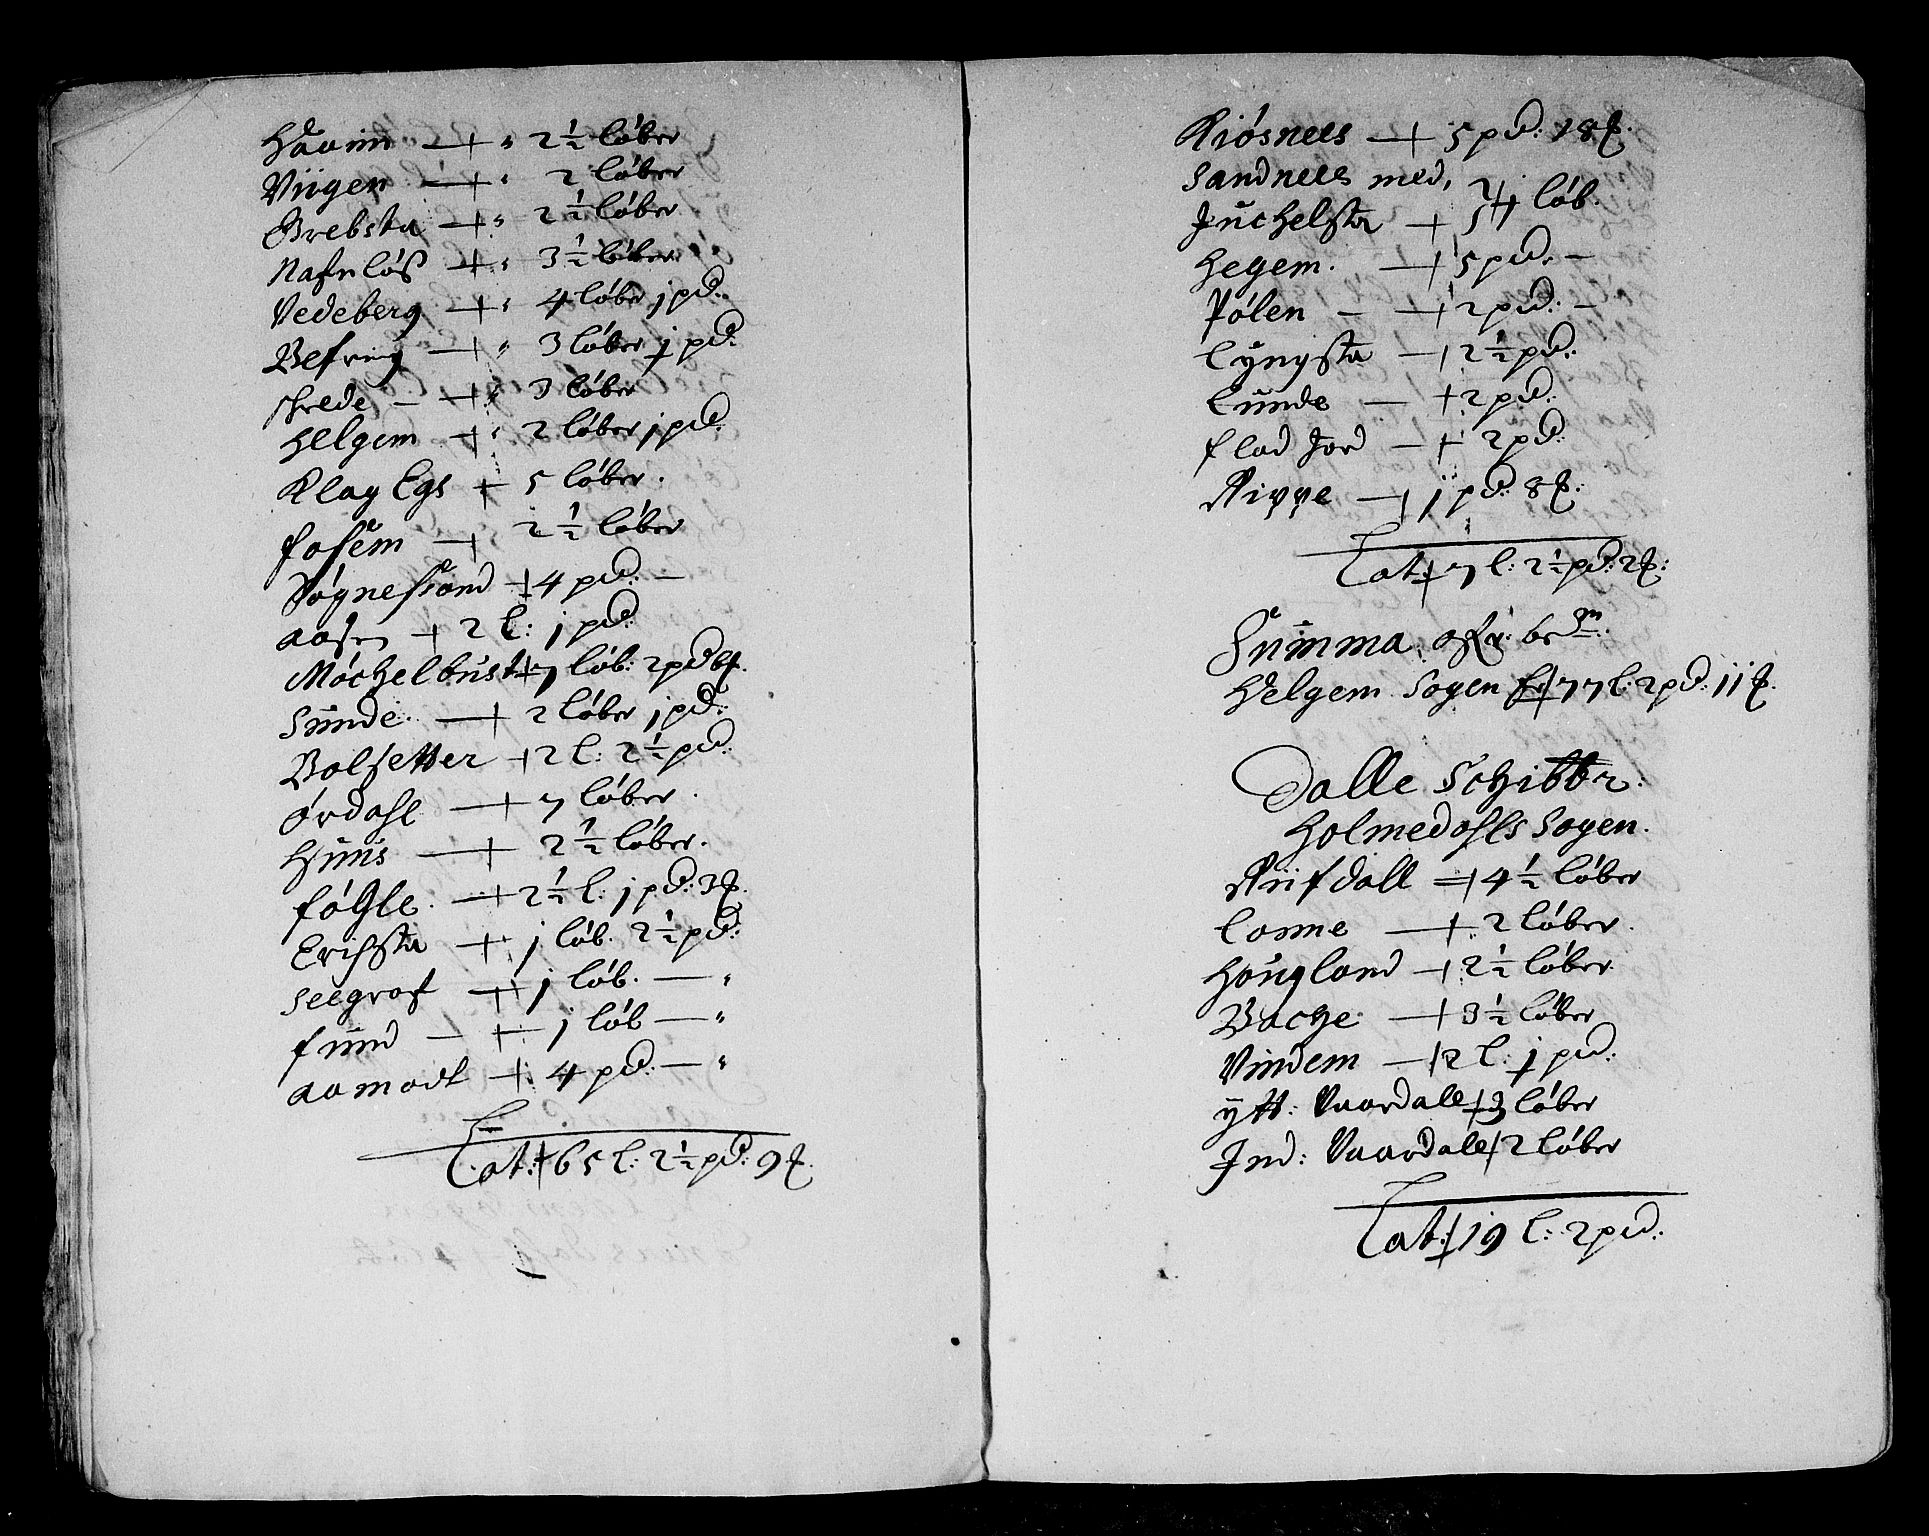 Haarim + 2½ løber
Viigen + 2 løber
Grebsta + 2½ løber
Nafnløß + 3½ løber
Vedeberg + 4 løber j pd:
Befring + 3 løber j pd:
Schrede + 3 løber
Helgem + 2 løber j pd:
Klag Egs + 5 løber
fosem + 2½ løber
Søgnessand + 4 pd: —
aasen + 2 l: j pd:
Møchelbust + 7 løb: 2 pd 6 ℔.
Sunde + 2 løber j pd:
Bolsetter + 2 l: 2½ pd:
ørdahl + 7 løber
Huus + 2½ løber.
føgle + 2½ l: j pd: 3 ℔.
Erichsta + j løb. 2½ pd:
Seegrof + j løb. —
fuud + j løb —
aamodt + 4 pd: —
Lat: + 65 l: 2½ pd: 9 ℔.
Kiøsnees + 5 pd: 18 ℔.
Sandnees med,
Juchelsta + 5 løb.
Hegem. + 5 pd. —
Pølen — + 2 pd: —
Lyngsta + 2½ pd:
Lunde + 2 pd:
flad Jord + 2 pd:
Rippe + j pd: 8 ℔.
Lat: + 7 l: 2½ pd: 2 ℔:
Summa
Helgem Sogen + 77 l: 2 pd: 11 ℔.
Dalle Schibbr:
Holmedahls Sogen.
Riifdall + 4½ løber
Losne + 2 løber.
Hougland + 2½ løber
Bache + 3½ løber
Vindem + 2 l: j pd:
ytt: Vaardall + 3 løber
Ind: Vaardall + 2 løber
Lat: + 19 l: 2 pd: